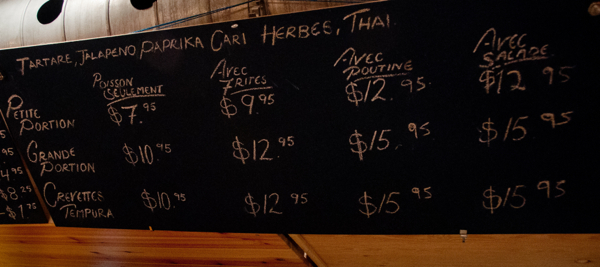 TARTARE, JALAPENO PAPRIKA CARI HERBEE, THAI
POISSON SEULEMENT AVEC FRITES AVEC POUTINE AVEC SALADE
PETITE PORTION $7.95 $9.95 $12.95 $12.95
GRANDE PORTION $10.95 $12.95 $15.95 $15.95
CREVETTES TEMPURA $10.95 $12.95 $15.95 $15.95
$8.25